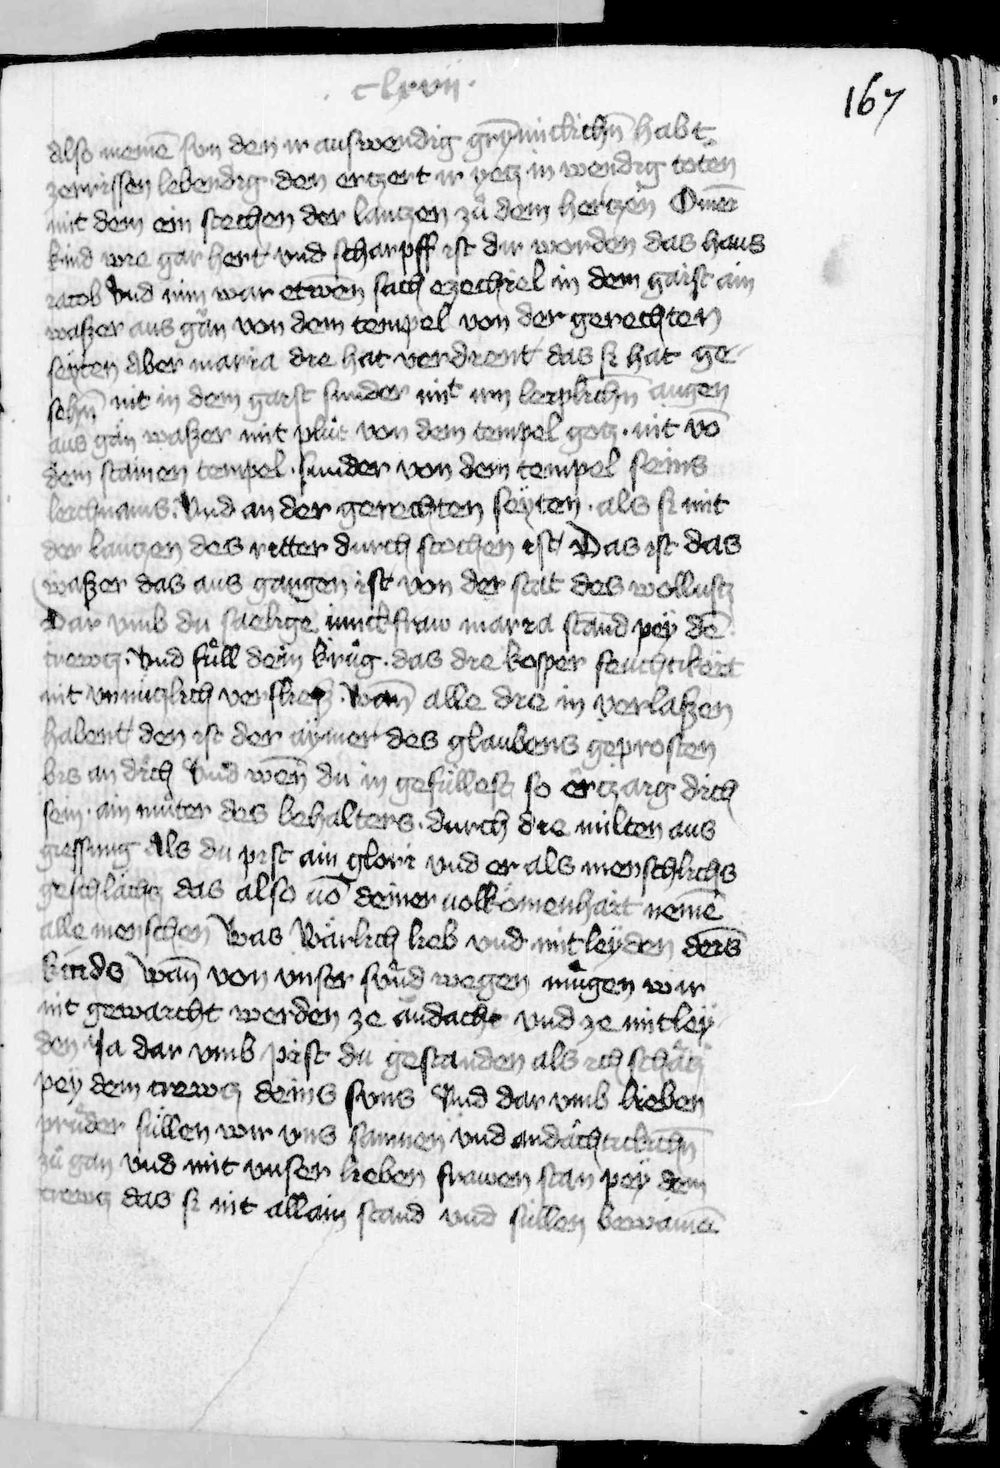 · clxvij ·
167
also meinē sun den ir auswendig grȳmicklichñ habt
zerrissen lebendig · den ertzert ir yetz in wendig toten
mit dem ein stechen der lantzen zů dem hertzen O mein
kind wie gar hert vnd scharpff ist dir worden das haus
iacob Vnd nim war etwen sach ezechiel in dem gaist ain
waßer aus gan von dem tempel von der gerechten
seyten Aber maria die hat verdient das si hat ge
sehñ nit in dem gaist sunder mit irn leiplichñ augen
aus gan waßer mit plůt von dem tempel gotz · nit vō
dem stainen tempel · sunder von dem tempel seins
leichnams. Vnd an der gerechten seyten · als si mit
der lantzen des ritter durch stochen ist Das ist das
waßer das aus gangen ist von der stat des wollustz
Dar vmb du saelige iunckfraw maria stand pey dē
crewtz. Vnd füll dein krůg · das die kosper feuchtikeit
nit vnnutzlich verfliess. Wañ alle die in verlaßen
habent den ist der aymer des glaubens geprosten
bis an dich Vnd weñ du in gefüllest so ertzaig dich
sein · ain můter des behalters · durch die milten aus
giessung Als du pist ain glori vnd er als menschlichs
geschlächtz das also uō deiner uolkömenhait nemē
alle menschen Was Wärlich lieb vnd mitleyden deis
kinds Wañ von vnser sünd wegen mügen wir
nit gewaicht werden ze andacht vnd ze mitley
den Ja dar vmb pist du gestanden als ich schätz
pey dem crewtz deins suns Vnd dar vmb lieben
prüder süllen wir vns samnen vnd andächticklichñ
zů gan vnd mit vnser lieben frawen stan pey dem
crewtz das si nit allain stand vnd süllen bewainē